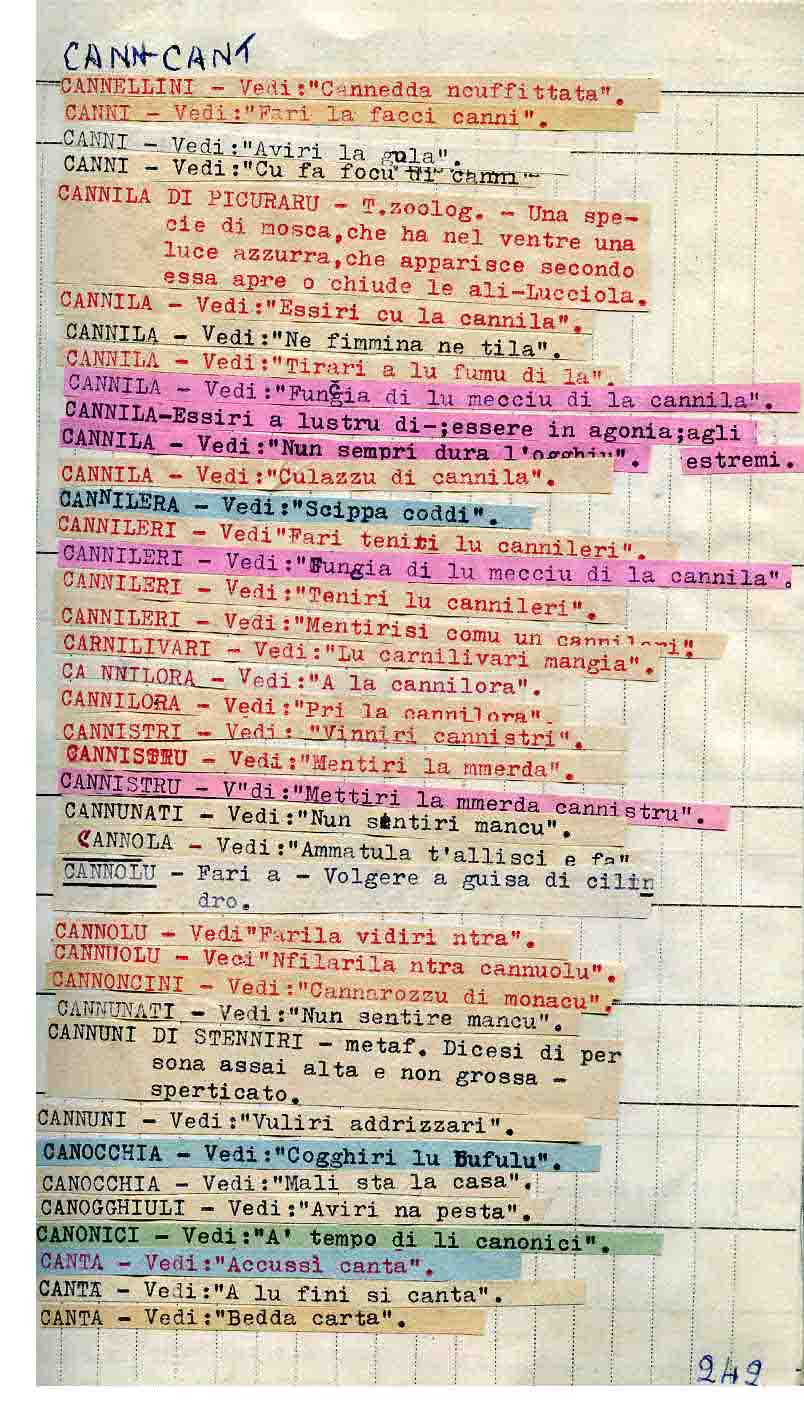 CANN-CANT
CANNELLINI - Vedi:"Cannedda ncuffittata".
CANNI - Vedi:"Fari la facci canni".
CANNI - Vedi:"Aviri la gula".
CANNI - Vedi:"Cu fa focu di canni"
CANNILA DI PICURARU - T.zoolog. - Una spe-
cie di mosca,che ha nel ventre una
luce azzurra,che apparisce secondo
essa apre o chiude le ali-Lucciola.
CANNILA - Vedi:"Essiri cu la cannila".
CANNILA - Vedi:"Ne fimmina ne tila".
CANNILA - Vedi:"Tirari a lu fumu di la".
CANNILA - Vedi:"Fungia di lu mecciu di la cannila".
CANNILA-Essiri a lustru di-;essere in agonia;agli
CANNILA - Vedi:"Nun sempri dura l'ogghiu". estremi.
CANNILA - Vedi:"Culazzu di cannila".
CANNILERA - Vedi:"Scippa coddi".
CANNILERI - Vedi"Fari teniri lu cannileri".
CANNILERI - Vedi:"Fungia di lu mecciu di la cannila".
CANNILERI - Vedi:"Teniri lu cannileri".
CANNILERI - Vedi:"Mentirisi comu un cannileri"
CARNILIVARI - Vedi:"Lu carnilivari mangia".
CA NNILORA - Vedi:"A la cannilora".
CANNILORA - Vedi:"Pri la cannilora".
CANNISTRI - Vedi: "Vinniri cannistri".
CANNISTRU - Vedi:"Mentiri la mmerda".
CANNISTRU - V"di:"Mettiri la mmerda cannistru".
CANNUNATI - Vedi:"Nun sentiri mancu".
CANNOLA - Vedi:"Ammatula t'allisci e fa"
CANNOLU - Fari a - Volgere a guisa di cilin
dro.
CANNOLU - Vedi"Farila vidiri ntra".
CANNUOLU - Veci"Nfilarila ntra cannuolu".
CANNONCINI - Vedi:"Cannarozzu di monacu".
CANNUNATI - Vedi:"Nun sentire mancu".
CANNUNI DI STENNIRI - metaf. Dicesi di per
sona assai alta e non grossa -
sperticato.
CANNUNI - Vedi:"Vuliri addrizzari".
CANOCCHIA - Vedi:"Cogghiri lu Bufulu".
CANOCCHIA - Vedi:"Mali sta la casa".
CANOGGHIULI - Vedi:"Aviri na pesta".
CANONICI - Vedi:"A' tempo di li canonici".
CANTA - Vedi:"Accussì canta".
CANTA - Vedi:"A lu fini si canta".
CANTA - Vedi:"Bedda carta".
242